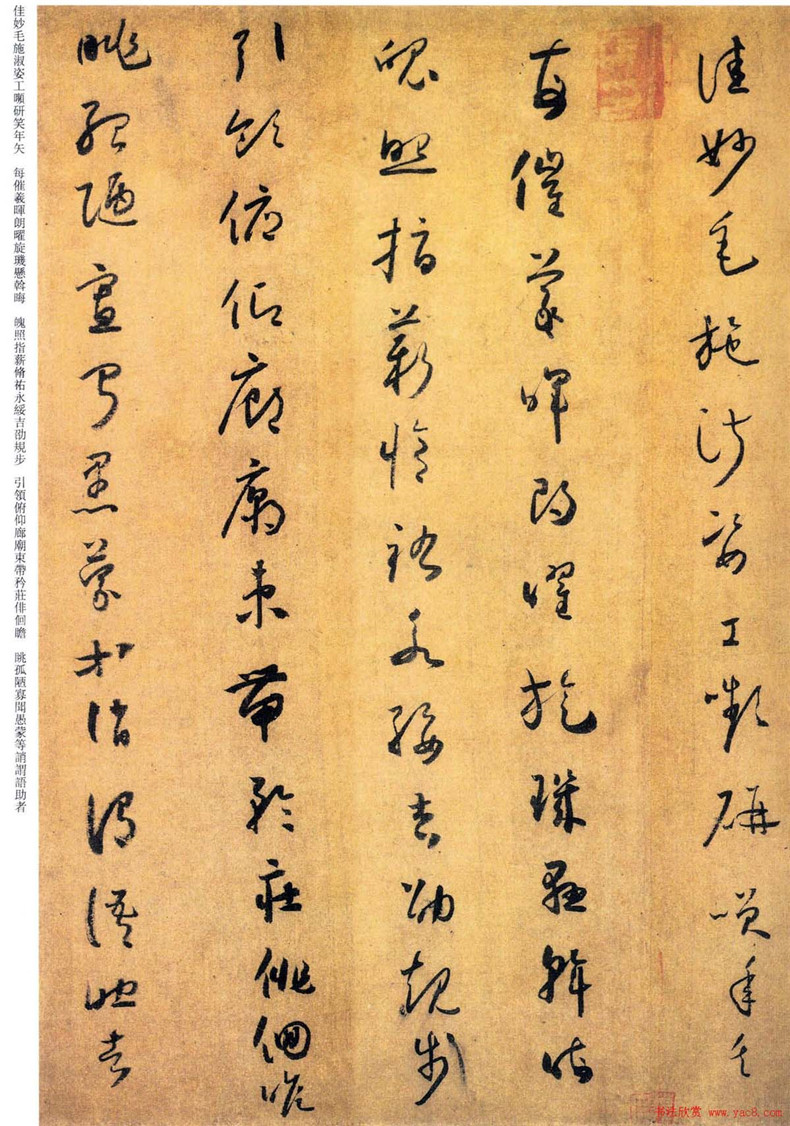 佳妙毛施淑姿工嚬研笑年矢
每催羲暉朗曜旋璣懸斡晦
魄照指薪脩祐永綏吉劭規步
引領俯仰廊廟束帶矜莊俳佪瞻
眺孤陋寡聞愚蒙等誚謂語助者
佳妙毛施淑姿工嚬研笑年矢 每催羲暉朗曜旋璣懸斡晦 魄照指薪脩祐永綏吉劭規步 引領俯仰廊廟束帶矜莊俳佪瞻 眺孤陋寡聞愚蒙等誚謂語助者
书法欣赏 www.yac8.com